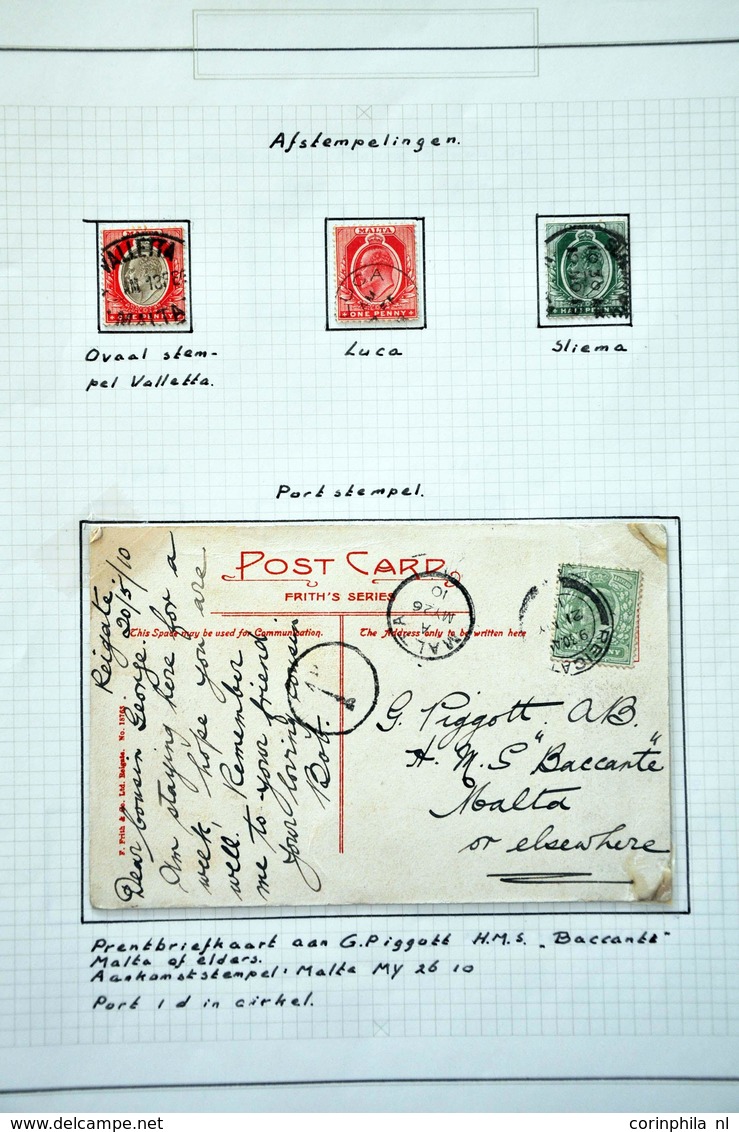 Afstempelingen.
VALLETTA
AM 13 FE
MALTA
ONE PENNY
MALTA
LUCA
ONE PENNY
HALFPENNY
Ovaal stem-
pel Valletta.
Luca
Sliema
Port stempel.
POST CARD
FRITH'S SERIES
This Space may be used for Communication.
The Address only to be written here
MALTA
A
MY 26
10
REIGATE
9 30 AM
21 MY
1 D
F. Frith & Co. Ltd. Reigate. No. 18765
Reigate.
20/5/10
Dear Cousin George.
Am staying here for a
week, hope you are
well. Remember
me to your friend.
Your loving cousin
Bob.
G. Piggott. A.B.
H. M. S "Baccante"
Malta
or elsewhere
Prentbriefkaart aan G. Piggott H.M.S. „Baccante"
Malta of elders.
Aankomststempel: Malta MY 26 10
Port 1 d in cirkel.
www.delcampe.net
corinphila nl